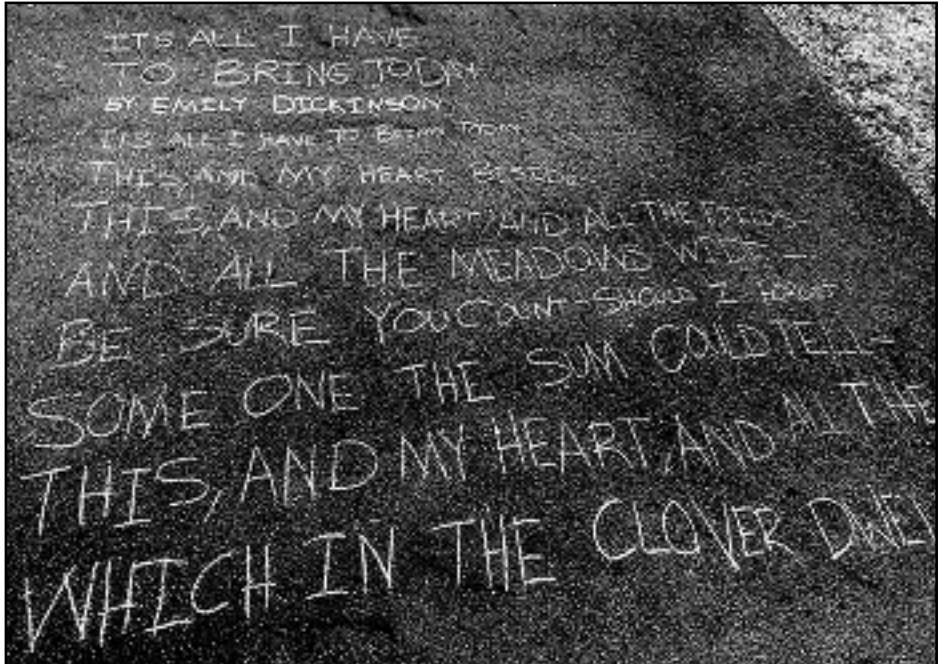 ITS ALL I HAVE
TO BRING TODAY
BY EMILY DICKINSON
ITS ALL I HAVE TO BRING TODAY
THIS, AND MY HEART BESIDE
THIS, AND MY HEART, AND ALL THE FIELDS-
AND ALL THE MEADOWS WIDE-
BE SURE YOU COUNT-SHOULD I FORGET
SOME ONE THE SUM COULD TELL-
THIS, AND MY HEART, AND AL THE
WHICH IN THE CLOVER DWEL